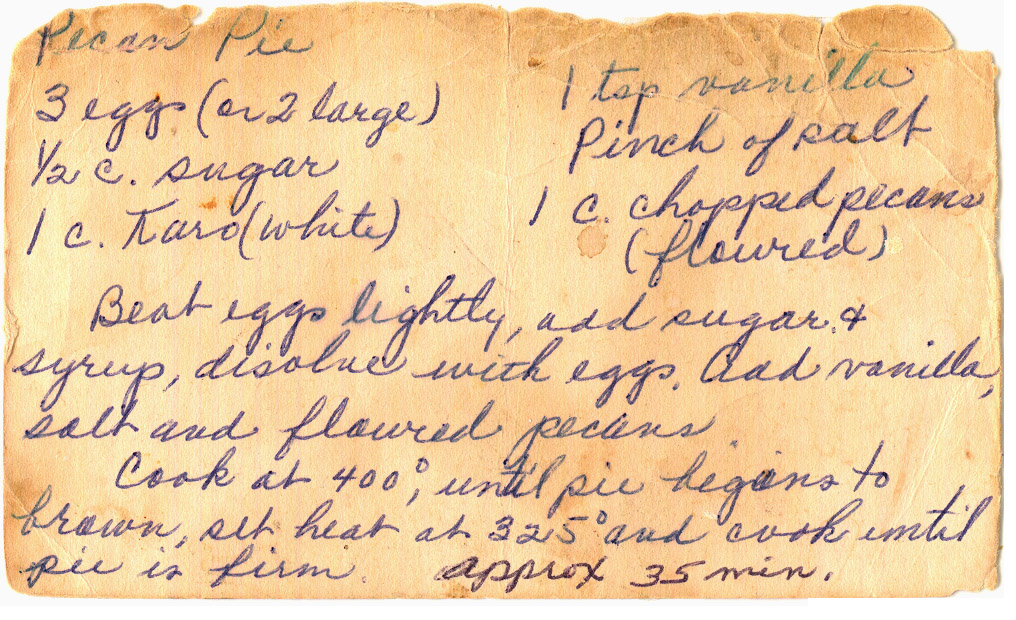 Pecan Pie
3 eggs (or 2 large)
½ c. sugar
1 c. Karo (white)
1 tsp vanilla
Pinch of salt
1 c. chopped pecans
(floured)
Beat eggs lightly, add sugar &
syrup, disolve with eggs. Add vanilla,
salt and floured pecans.
Cook at 400°, until pie begins to
brown, set heat at 325° and cook until
pie is firm. approx 35 min.